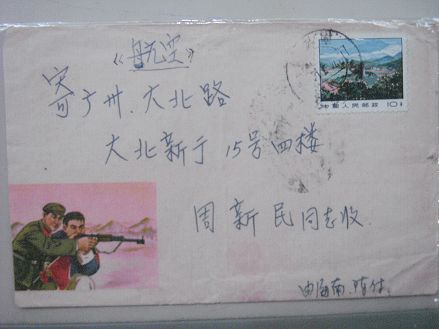 《航空》
寄广州.大北路
大北新于15号四楼
周新民同志收
由海南.
中国人民邮政
10分